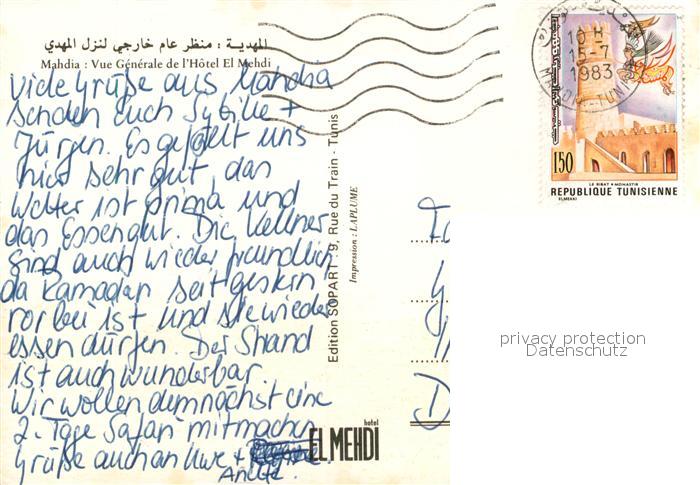 المهدية : منظر عام خارجي لنزل المهدي
Mahdia : Vue Générale de l'Hôtel El Mehdi
Viele Grüße aus Mahdia
senden Euch Sybille +
Jürgen. Es gefällt uns
hier sehr gut, das
Wetter ist prima und
das Essen gut. Die Kellner
sind auch wieder freundlich
da Ramadan seit gestern
vorbei ist und sie wieder
essen dürfen. Der Strand
ist auch wunderbar.
Wir wollen demnächst eine
2. Tage Safari mitmachen
Grüße auch an Uwe +
Anette.
Edition SOPART : 9, Rue du Train - Tunis
Impression : LAPLUME
hotel
EL MEHDI
10 H
15-7
1983
MAHDIA - TUNISIE
150
LE RIBAT • MONASTIR
REPUBLIQUE TUNISIENNE
ELMEKKI
privacy protection
Datenschutz